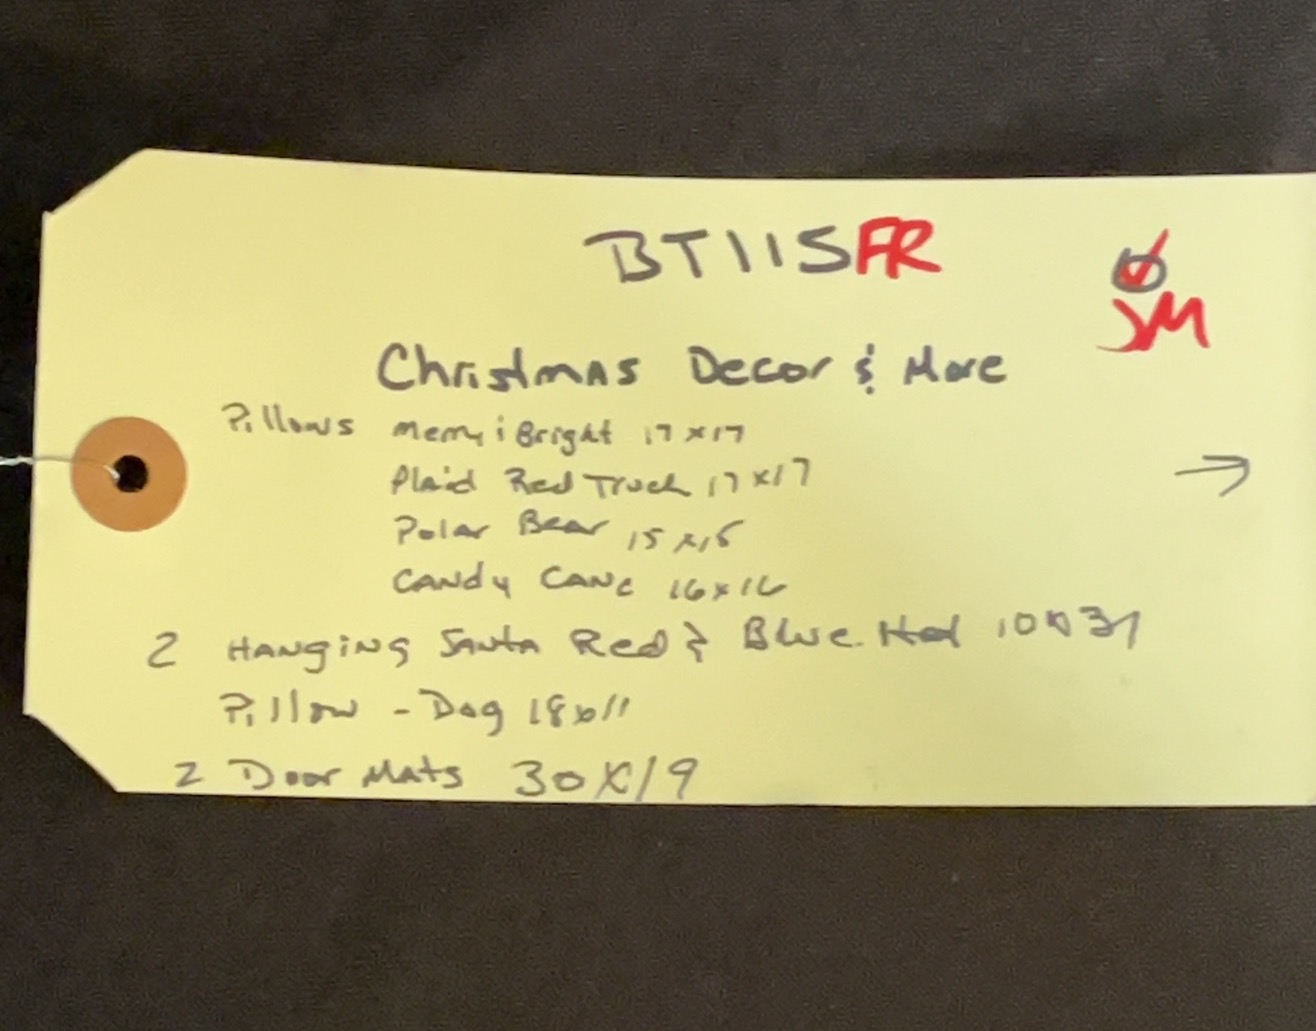 BT115FR
JM
Christmas Decor & More
Pillows Merry & Bright 17x17
Plaid Red Truck 17x17
Polar Bear 15x15
Candy Cane 16x16
2 Hanging Santa Red & Blue Hat 10x31
Pillow - Dog 18x11
2 Door Mats 30x19